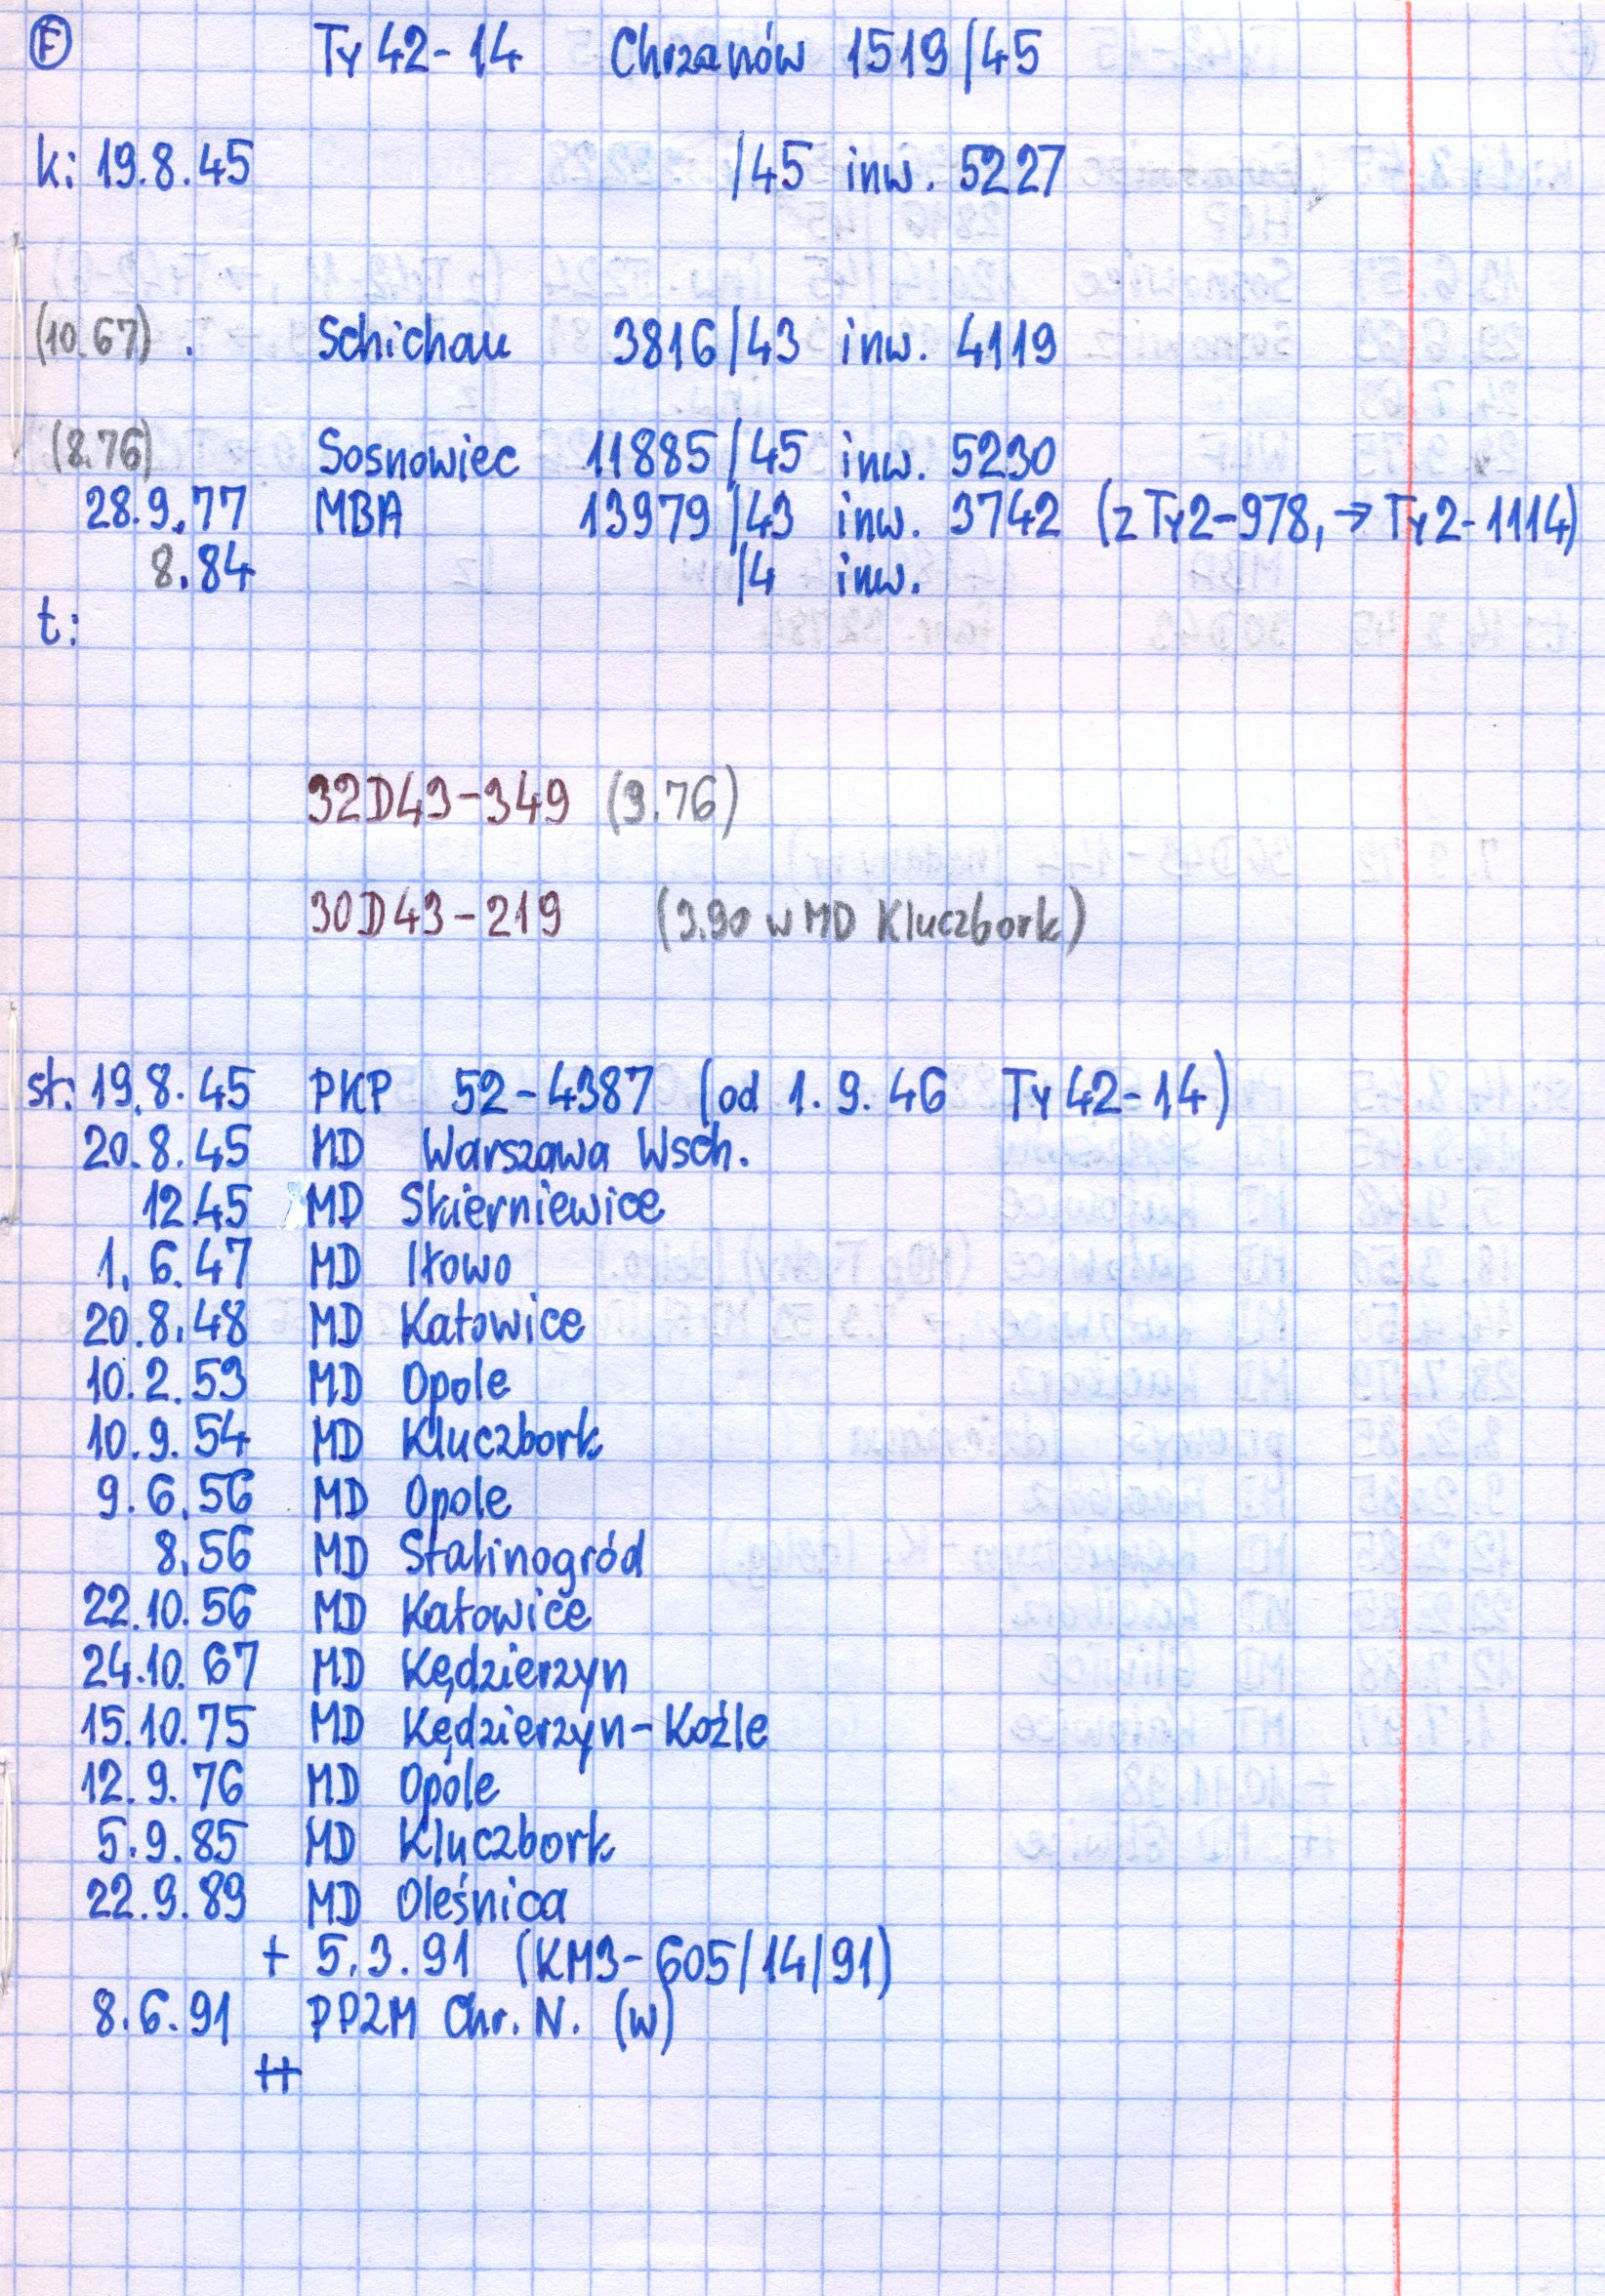 F Ty 42-14 Chrzanów 1519/45
k: 19.8.45 /45 inw. 5227
(10.67) . Schichau 3816/43 inw. 4119
(8.76) Sosnowiec 11885/45 inw. 5230
28.9.77 MBA 13979/43 inw. 3742 (z Ty2-978, → Ty2-1114)
8.84 /4 inw.
t:
32D43-349 (9.76)
30D43-219 (3.90 w MD Kluczbork)
st: 19.8.45 PKP 52-4387 (od 1.9.46 Ty 42-14)
20.8.45 MD Warszawa Wsch.
12.45 MD Skierniewice
1.6.47 MD Iłowo
20.8.48 MD Katowice
10.2.53 MD Opole
10.9.54 MD Kluczbork
9.6.56 MD Opole
8.56 MD Stalinogród
22.10.56 MD Katowice
24.10.67 MD Kędzierzyn
15.10.75 MD Kędzierzyn-Koźle
12.9.76 MD Opole
5.9.85 MD Kluczbork
22.9.89 MD Oleśnica
+ 5.3.91 (KM3-605/14/91)
8.6.91 PPZM Chr. N. (w)
++